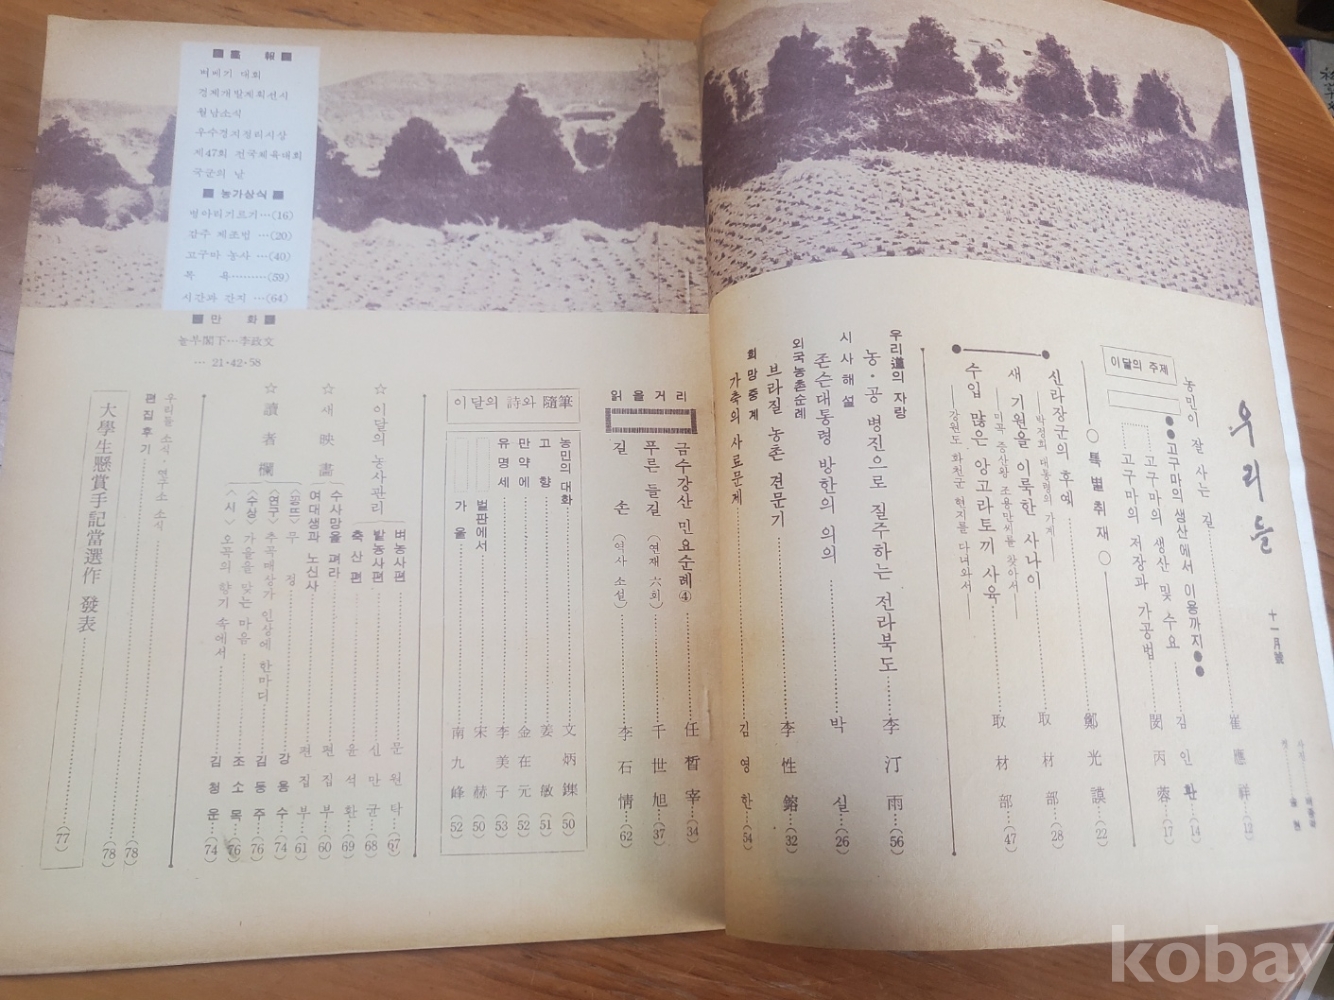 우리들
十一月號
농민이 잘 사는 길………崔應祥…(12)
이달의 주제
●●고구마의 생산에서 이용까지●●
고구마의 생산 및 수요………김인환…(14)
고구마의 저장과 가공법………閔丙蓉…(17)
○특별취재○
신라장군의 후예………鄭光謨…(22)
―박정희 대통령의 가계―
새 기원을 이룩한 사나이………取材部…(28)
조용만씨를 찾아서―
수입 많은 앙고라토끼 사육………取材部…(47)
―강원도 화천군 현지를 다녀와서―
우리道의 자랑
농·공 병진으로 질주하는 전라북도………李汀雨…(56)
시사해설
존슨대통령 방한의 의의………박실…(26)
외국농촌순례
브라질 농촌 견문기………李性鎔…(32)
희망중계
가축의 사료문제………김영한…(54)
읽을거리
금수강산 민요순례④………任晳宰…(34)
푸른 들길(연재 六회)………千世旭…(37)
길손(역사 소설)………李石情…(62)
이달의 詩와 隨筆
농민의 대화………文炳鏶…(50)
고향………姜敏…(51)
만약에………金在元…(52)
유명세………李美子…(53)
벌판에서………宋赫…(50)
가을………南九峰…(52)
☆이달의 농사관리
벼농사편………문원탁…(67)
밭농사편………신만균…(68)
축산편………윤석환…(69)
☆새映畵
수사망을 펴라………편집부…(60)
여대생과 노신사………편집부…(61)
☆讀者欄
〈꽁뜨〉무정………강용수…(74)
〈연구〉추곡매상가 인상에 한마디………김동주…(76)
〈수상〉가을을 맞는 마음………조소목…(76)
〈시〉오곡의 향기 속에서………김청운…(74)
우리들 소식·연구소 소식………(78)
편집후기………(78)
大學生懸賞手記當選作 發表………(77)
■畵報■
벼베기 대회
경제개발계획전시
월남소식
우수경지정리시상
제47회 전국체육대회
국군의 날
■농가상식■
병아리기르기…(16)
감주 제조법…(20)
고구마 농사…(40)
목욕………(59)
시간과 간지…(64)
■만화■
놀부閣下…李政文
…21·42·58
kobay